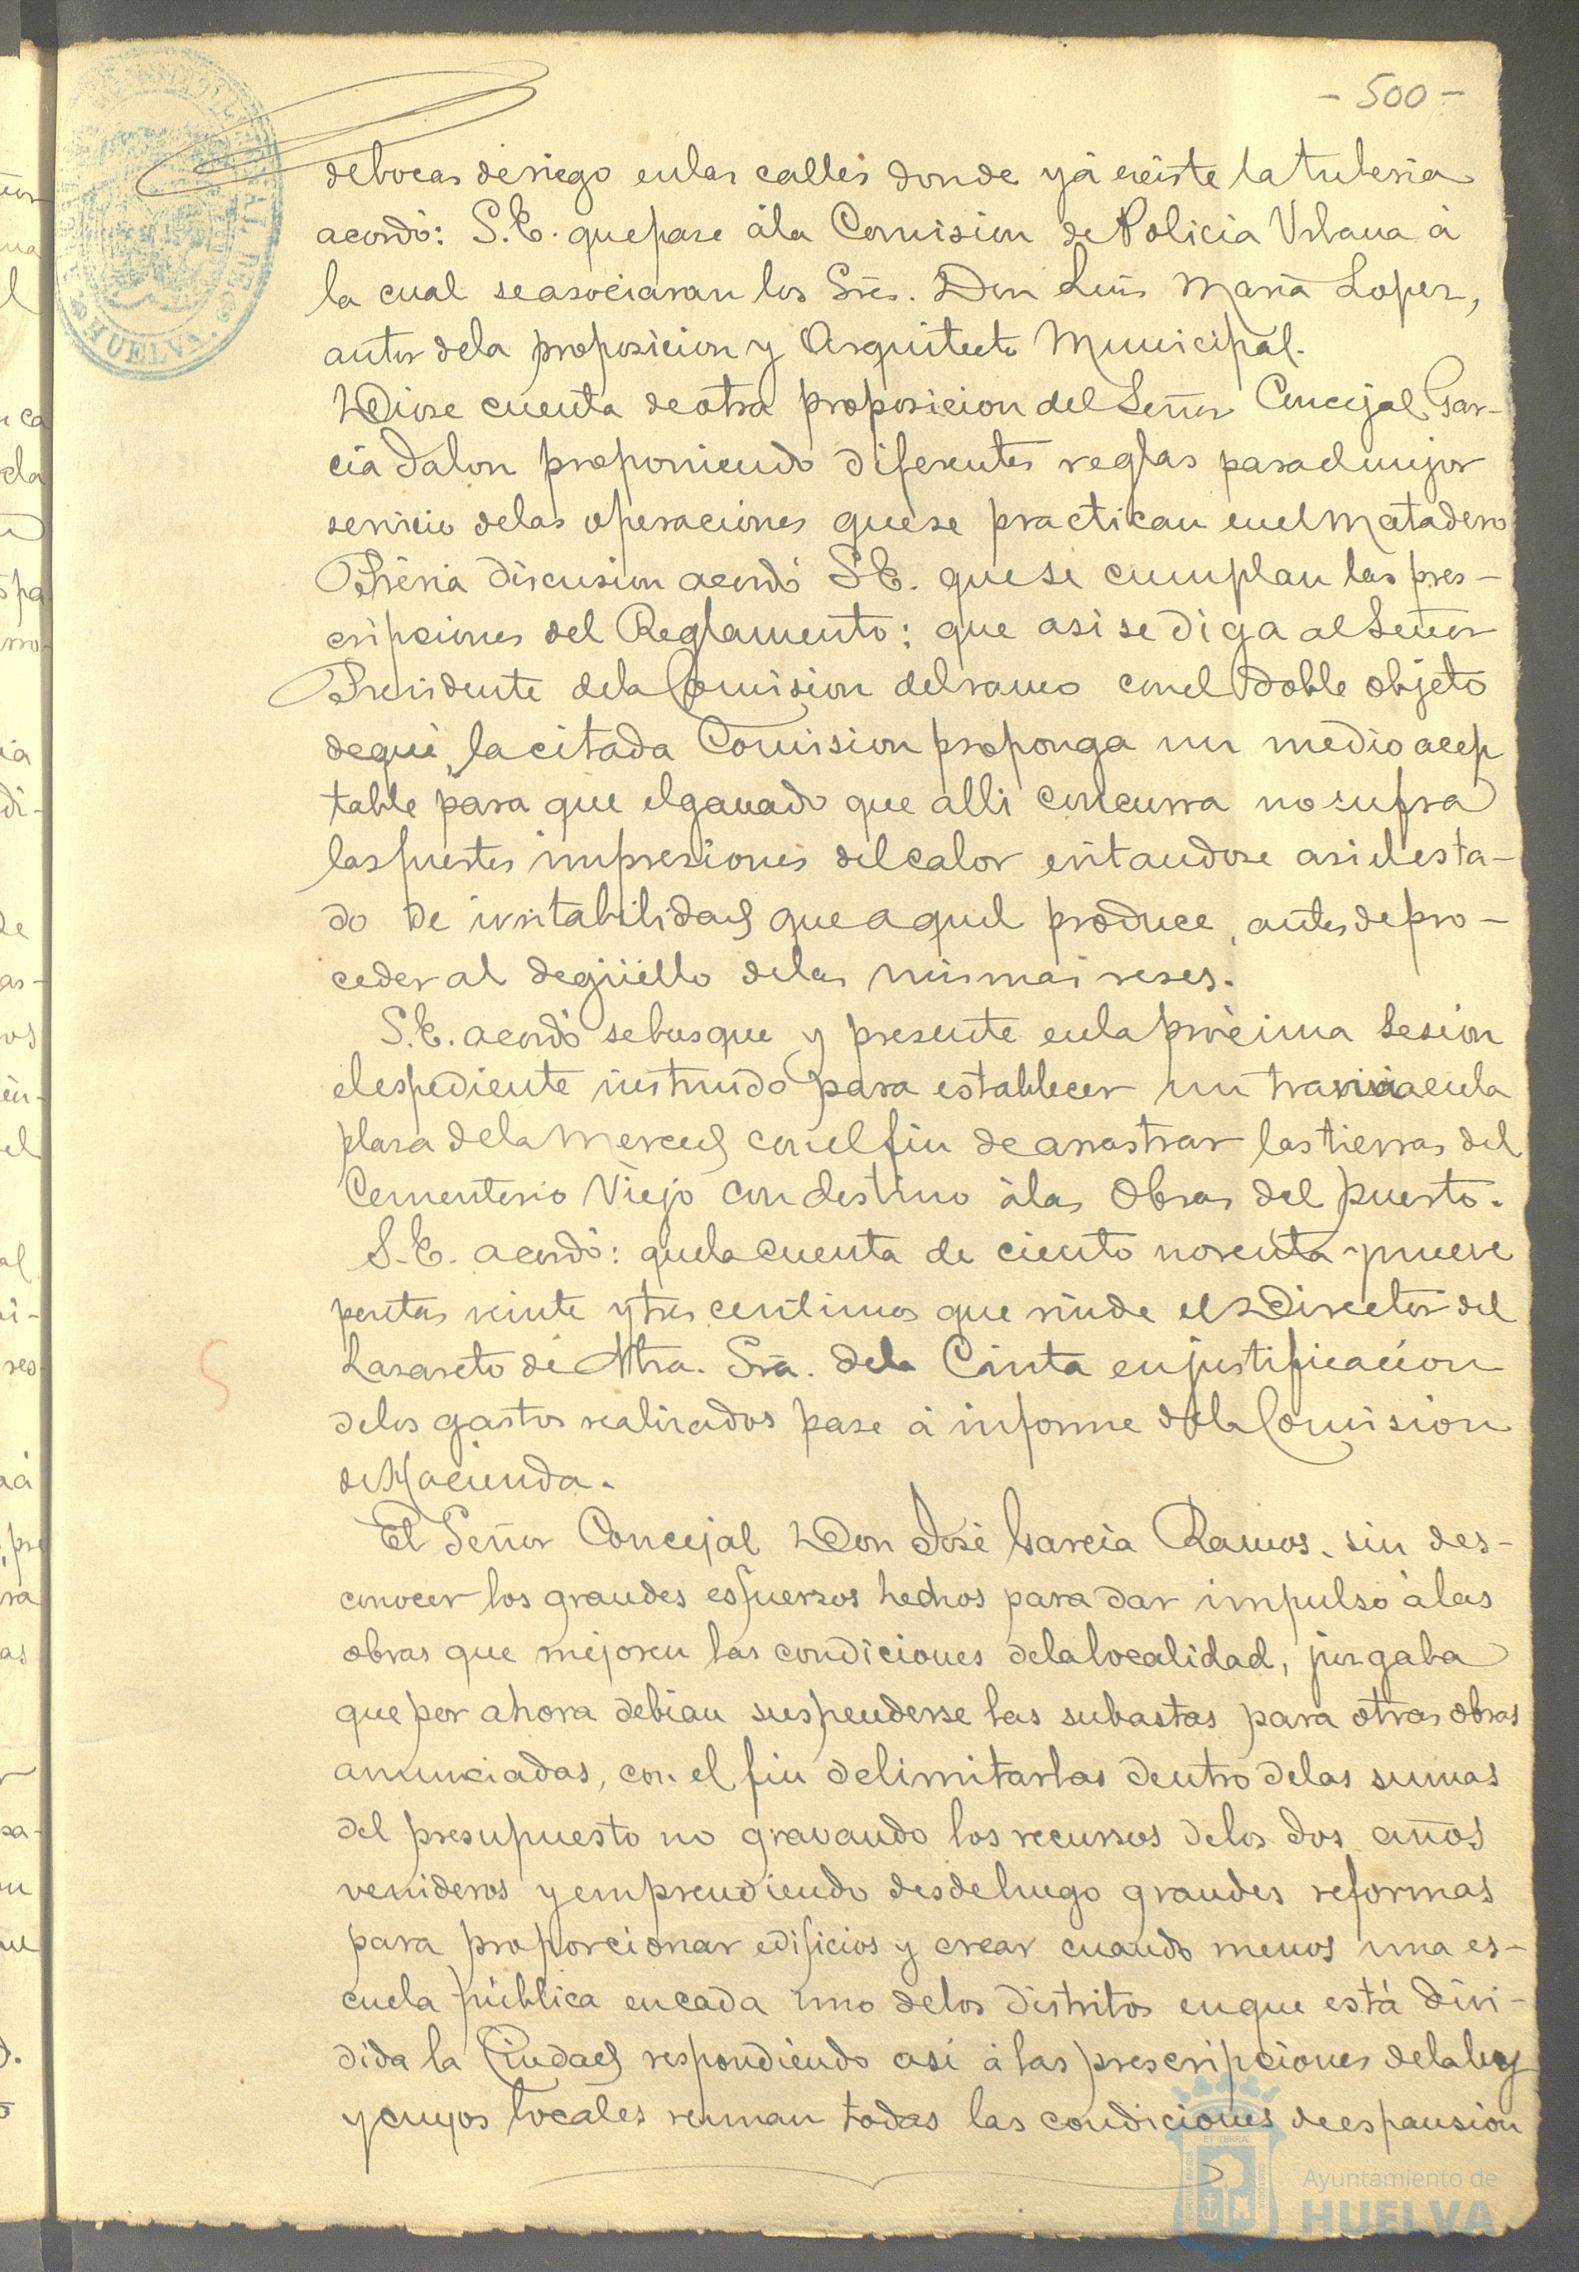 - 500 -
de bocas de riego en las calles donde yá existe la tuberia
acordó: S.E. que pase á la Comision de Policia Urbana á
la cual se asociaran los Sres. Don Luis Maria Lopez,
autor de la proposicion y Arquitecto Municipal.
Diose cuenta de otra proposicion del Señor Concejal Gar-
cia Jalon proponiendo diferentes reglas para el mejor
servicio de las operaciones que se practican en el Matadero
Prévia discusion acordó S.E. que se cumplan las pres-
cripciones del Reglamento; que asi se diga al Señor
Presidente de la Comision del ramo con el doble objeto
de que la citada Comision proponga un medio acep
table para que el ganado que alli concurra no sufra
las fuertes impresiones del calor evitandose asi el esta-
do de irritabilidad que aquel produce, antes de pro-
ceder al degüello de las mismas reses.
S.E. acordó se busque y presente en la próxima sesion
el espediente instruido para establecer un tranvia en la
plaza de la Merced con el fin de arrastrar las tierras del
Cementerio Viejo con destino á las Obras del puerto.
S.E. acordó: que la cuenta de ciento noventa y nueve
pesetas veinte y tres centimos que rinde el Director del
Lazareto de Ntra. Sra. de la Cinta en justificacion
de los gastos realizados pase á informe de la Comision
de Hacienda.
El Señor Concejal Don José Garcia Ramos, sin des-
conocer los grandes esfuerzos hechos para dar impulso á las
obras que mejoren las condiciones de la localidad, juzgaba
que por ahora debian suspenderse las subastas para otras obras
anunciadas, con el fin de limitarlas dentro de las sumas
del presupuesto no gravando los recursos de los dos años
venideros y emprendiendo desde luego grandes reformas
para proporcionar edificios y crear cuando menos una es-
cuela pública en cada uno de los distritos en que está divi-
dida la Ciudad respondiendo asi á las prescripciones de la ley
y cuyos locales reunan todas las condiciones de espansion
HUELVA.
Ayuntamiento de
HUELVA